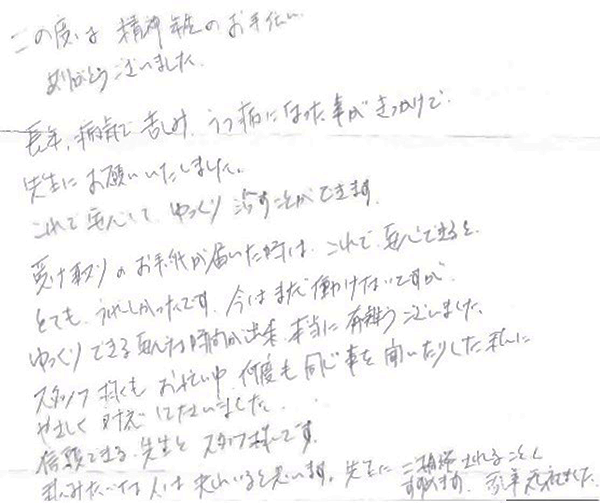 この度は 精神障害のお手伝い
ありがとうございました。
長年、病気で苦しみ、うつ病になった事がきっかけで
先生にお願いいたしました。
これで安心して ゆっくり 治すことができます。
受け取りのお手紙が届いた時は、これで、安心できると
とても、うれしかったです。今はまだ働けないですが
ゆっくりできる 時間が出来 本当に有難うございました。
スタッフ様も お忙い中 何度も同じ事を聞いたりした私に
やさしく 対応して下さいました。
信頼できる 先生と スタッフ様です。
私みたいな人は 沢山いると思います。先生に ご相談されることを
すすめます。